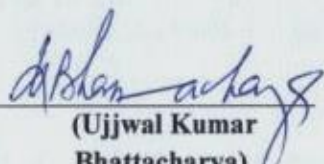 (Ujjwal Kumar
Bhattacharya)